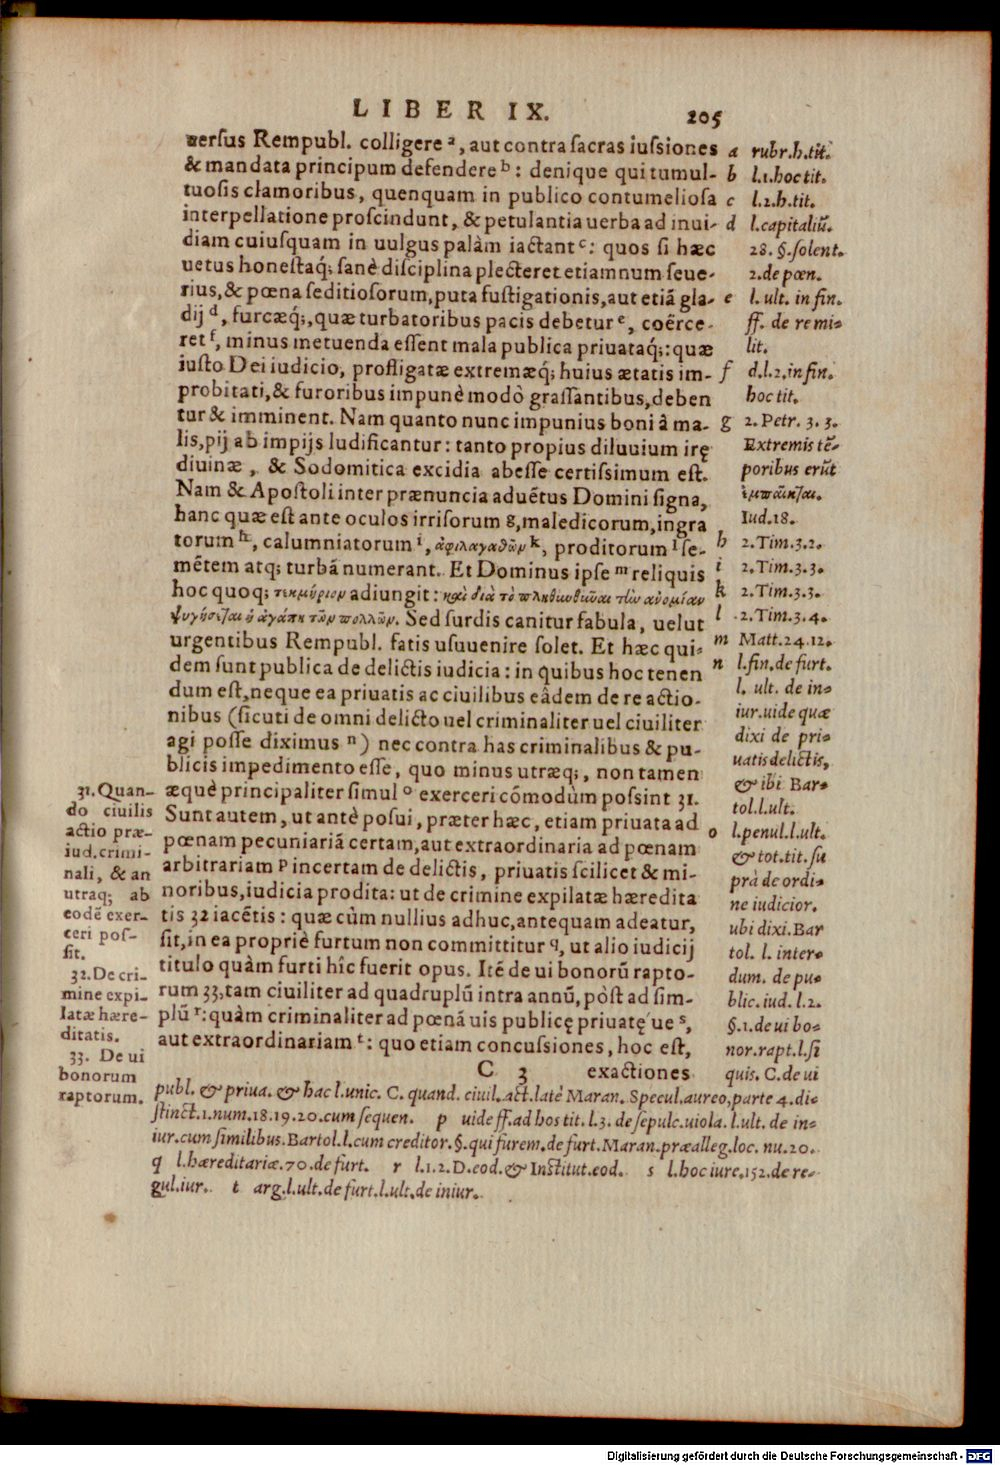 LIBER IX. 205
uersus Rempubl. colligere a, aut contra sacras iussiones
& mandata principum defendere b: denique qui tumul-
tuosis clamoribus, quenquam in publico contumeliosa
interpellatione proscindunt, & petulantia uerba ad inui-
diam cuiusquam in uulgus palàm iactant c: quos si hæc
uetus honestaq́; sanè disciplina plecteret etiamnum seue-
rius, & pœna seditiosorum, puta fustigationis, aut etiã gla-
dij d, furcæq́;, quæ turbatoribus pacis debetur e, coërce-
ret f, minus metuenda essent mala publica priuataq́;: quæ
iusto Dei iudicio, profligatæ extremæq́; huius ætatis im-
probitati, & furoribus impunè modò grassantibus, deben
tur & imminent. Nam quanto nunc impunius boni â ma-
lis, pij ab impijs ludificantur: tanto propius diluuium irę
diuinæ, & Sodomitica excidia abesse certissimum est.
Nam & Apostoli inter prænuncia aduẽtus Domini signa,
hanc quæ est ante oculos irrisorum g, maledicorum, ingra
torum h, calumniatorum i, ἀφιλαγαθῶν k, proditorum l se-
mẽtem atq; turbã numerant. Et Dominus ipse m reliquis
hoc quoq; τεκμύριον adiungit: καὶ διὰ τὸ πληθυνθῶναι τὴν ἀνομίαν
ψυγήσεται ἡ ἀγάπη τῶν πολλῶν. Sed surdis canitur fabula, uelut
urgentibus Rempubl. fatis usuuenire solet. Et hæc qui-
dem sunt publica de delictis iudicia: in quibus hoc tenen
dum est, neque ea priuatis ac ciuilibus eâdem de re actio-
nibus (sicuti de omni delicto uel criminaliter uel ciuiliter
agi posse diximus n) nec contra has criminalibus & pu-
blicis impedimento esse, quo minus utræq;, non tamen
æquè principaliter simul o exerceri cómodùm possint 31.
Sunt autem, ut antè posui, præter hæc, etiam priuata ad
pœnam pecuniariã certam, aut extraordinaria ad pœnam
arbitrariam p incertam de delictis, priuatis scilicet & mi-
noribus, iudicia prodita: ut de crimine expilatæ hæredita
tis 32 iacẽtis: quæ cùm nullius adhuc, antequam adeatur,
sit, in ea propriè furtum non committitur q, ut alio iudicij
titulo quàm furti hîc fuerit opus. Itẽ de ui bonorũ rapto-
rum 33, tam ciuiliter ad quadruplũ intra annũ, pòst ad sim-
plũ r: quàm criminaliter ad pœnã uis publicę priuatę ue s,
aut extraordinariam t: quo etiam concussiones, hoc est,
C 3 exactiones
a rubr.h.tit.
b l.1.hoc tit.
c l.2.h.tit.
d l.capitaliũ.
28. §.solent.
2.de pœn.
e l. ult. in fin.
ff. de re mi-
lit.
f d.l.2.in fin.
hoc tit.
g 2. Petr. 3. 3.
Extremis tẽ-
poribus erũt
ἐμπαῖκται.
Iud.18.
h 2.Tim.3.2.
i 2.Tim.3.3.
k 2.Tim.3.3.
l 2.Tim.3.4.
m Matt.24.12.
n l.fin.de furt.
l. ult. de in-
iur.uide quæ
dixi de pri-
uatis delictis,
& ibi Bar-
tol.l.ult.
o l.penul.l.ult.
& tot.tit.su
prà de ordi-
ne iudicior.
ubi dixi. Bar
tol. l. inter-
dum. de pu-
blic.iud.l.2.
§.1.de ui bo-
nor.rapt.l.si
quis. C.de ui
31. Quan-
do ciuilis
actio præ-
iud.crimi-
nali, & an
utraq; ab
eodẽ exer-
ceri pos-
sit.
32. De cri-
mine expi-
latæ hære-
ditatis.
33. De ui
bonorum
raptorum.
publ. & priua. & hac l.unic. C. quand. ciuil. act. latè Maran. Specul. aureo, parte 4. di-
stinct.1.num.18.19.20.cum sequen. p uide ff.ad hos tit.l.3. de sepulc.uiola.l.ult. de in-
iur.cum similibus. Bartol.l.cum creditor.§.qui furem.de furt. Maran.præalleg.loc. nu.20.
q l.hæreditariæ.70.de furt. r l.1.2.D.eod.& Institut.eod. s l.hoc iure.152.de re-
gul.iur. t arg.l.ult.de furt.l.ult.de iniur.
Digitalisierung gefördert durch die Deutsche Forschungsgemeinschaft - DFG